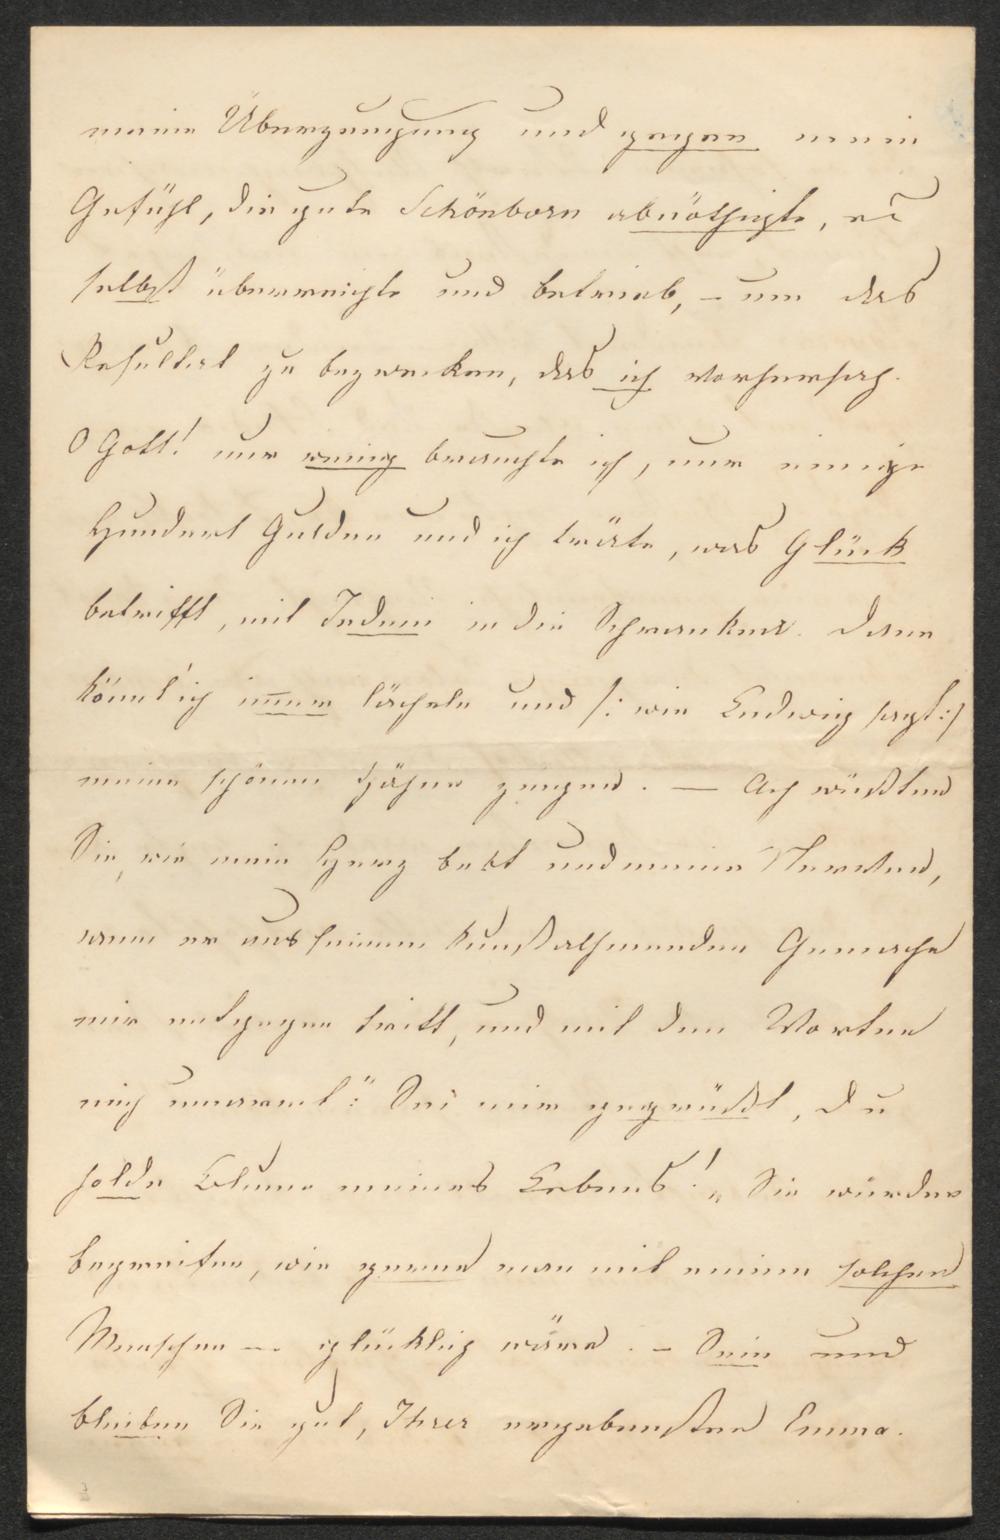 meine Überzeugung und gegen mein
Gefühl, die gute Schönborn abnöthigte, es
selbst überreichte und betrieb, – um das
Resultat zu bezwecken, das ich vorhersah.
O Gott! nur wenig brauchte ich, nur einige
Hundert Gulden und ich träte, was Glück
betrifft, mit Jedem in die Schranken. Dann
könnt' ich immer lächeln und /: wie Ludwig sagt :/
meine schönen Zähne zeigen. — Ach wüßten
Sie, wie mein Herz bebt und meine Nerven,
wenn er aus seinem kunstathmenden Gemache
mir entgegen tritt, und mit den Worten
mich umarmt: "Sei mir gegrüßt, du
holde Blume meines Lebens!" Sie würden
begreifen, wie gerne man mit einem solchen
Menschen — glücklich wäre. – Sein und
bleiben Sie gut, Ihrer ergebensten Emma.